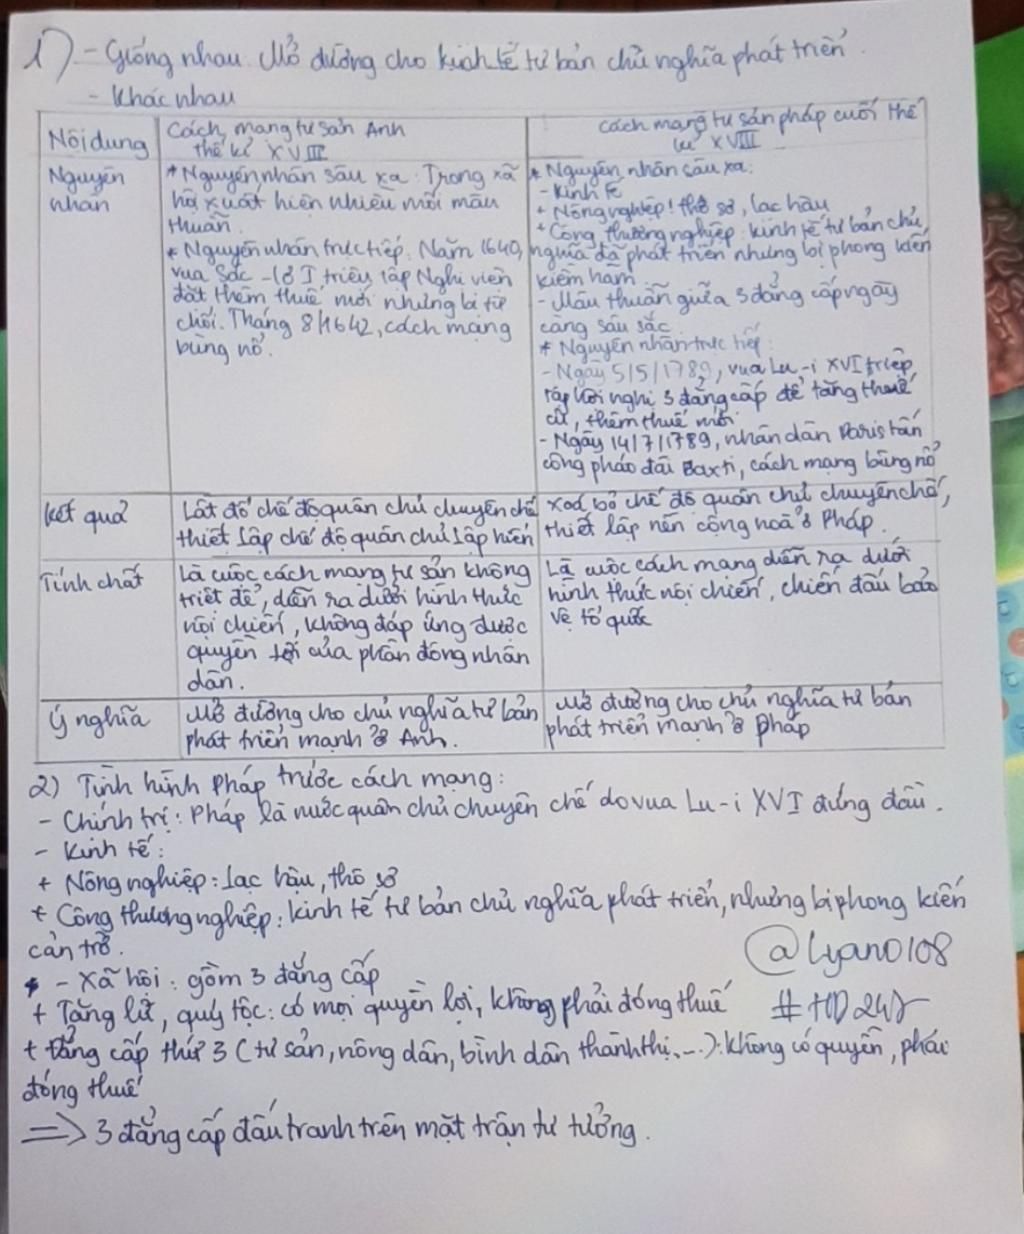 1) - Giống nhau: Mở đường cho kinh tế tư bản chủ nghĩa phát triển.
- Khác nhau
Nội dung
Cách mạng tư sản Anh
thế kỉ XVIII
Cách mạng tư sản pháp cuối thế
kỉ XVIII
Nguyên
nhân
* Nguyên nhân sâu xa: Trong xã
hội xuất hiện nhiều mối mâu
thuẫn.
* Nguyên nhân trực tiếp: Năm 1640,
vua Sác-lơ I triệu tập Nghị viện
đặt thêm thuế mới nhưng bị từ
chối. Tháng 8/1642, cách mạng
bùng nổ.
* Nguyên nhân sâu xa:
- Kinh tế
+ Nông nghiệp: thô sơ, lạc hậu
+ Công thương nghiệp: kinh tế tư bản chủ
nghĩa đã phát triển nhưng bị phong kiến
kiềm hãm
- Mâu thuẫn giữa 3 đẳng cấp ngày
càng sâu sắc
* Nguyên nhân trực tiếp:
- Ngày 5/5/1789, vua Lu-i XVI triệp
tập hội nghị 3 đẳng cấp để tăng thuế
cũ, thêm thuế mới
- Ngày 14/7/1789, nhân dân Paris tấn
công pháo đài Baxti, cách mạng bùng nổ
Kết quả
Lật đổ chế độ quân chủ chuyên chế
thiết lập chế độ quân chủ lập hiến
Xoá bỏ chế độ quân chủ chuyên chế,
thiết lập nền cộng hoà ở Pháp.
Tính chất
Là cuộc cách mạng tư sản không
triệt để, diễn ra dưới hình thức
nội chiến, không đáp ứng được
quyền lợi của phần đông nhân
dân.
Là cuộc cách mạng diễn ra dưới
hình thức nội chiến, chiến đấu bảo
vệ tổ quốc
Ý nghĩa
Mở đường cho chủ nghĩa tư bản
phát triển mạnh ở Anh.
Mở đường cho chủ nghĩa tư bản
phát triển mạnh ở Pháp
2) Tình hình Pháp trước cách mạng:
- Chính trị: Pháp là nước quân chủ chuyên chế do vua Lu-i XVI đứng đầu.
- Kinh tế:
+ Nông nghiệp: lạc hậu, thô sơ
+ Công thương nghiệp: kinh tế tư bản chủ nghĩa phát triển, nhưng bị phong kiến
cản trở.
@Lyano108
- Xã hội: gồm 3 đẳng cấp
+ Tăng lữ, quý tộc: có mọi quyền lợi, không phải đóng thuế
#HD247
+ Đẳng cấp thứ 3 (tư sản, nông dân, bình dân thành thị,...): không có quyền, phải
đóng thuế
=> 3 đẳng cấp đấu tranh trên mặt trận tư tưởng.